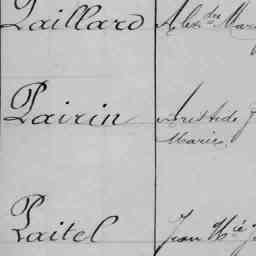 Paillard Alex.dre Marie
Pairin Aristide J
Marie.
Paitel Jean M.ie J